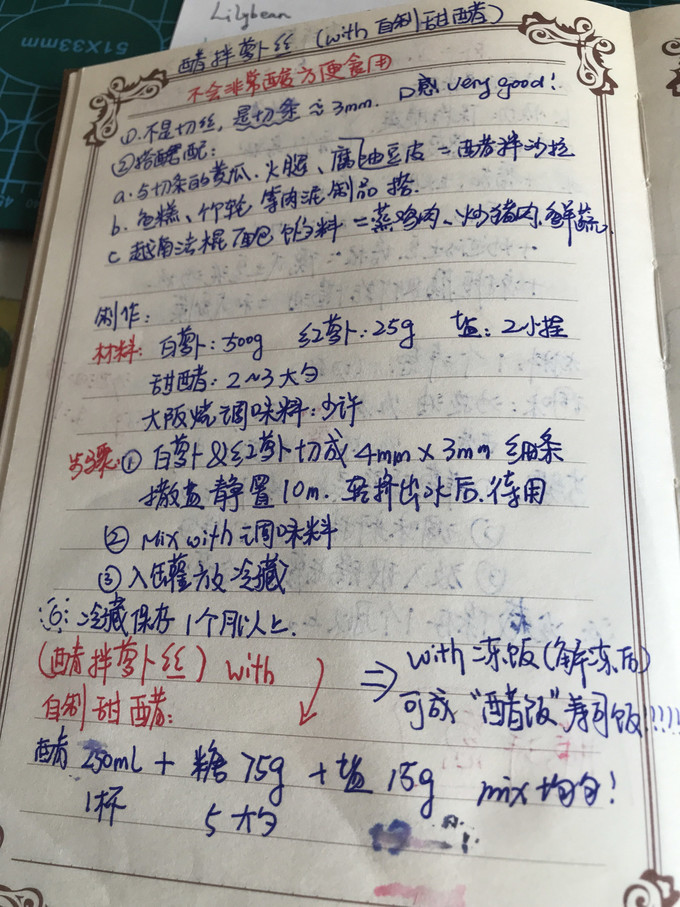 Lilybean
51X33mm
醋拌萝卜丝 (with 自制甜醋)
不会非常酸方便食用
①.不是切丝,是切条≈3mm. 口感 very good!
②搭配:
a.与切条的黄瓜.火腿、腐油豆皮=醋拌沙拉
b. 鱼糕、竹轮 等肉泥制品搭.
c 越南法棍面包馅料=蒸鸡肉、炒猪肉,鲜蔬.
制作:
材料: 白萝卜:500g 红萝卜:25g 盐:2小挫
甜醋:2~3大勺
大阪烧调味料:少许
步骤:① 白萝卜&红萝卜切成4mm×3mm细条
撒盐静置10m. 轻挤出水后.待用
② Mix with 调味料
③ 入罐放冷藏
冷藏保存1个月以上.
(醋拌萝卜丝) with
自制甜醋:
⇒ with 冻饭(解冻后)
可成“醋饭”寿司饭!!!!!
醋 250ml + 糖 75g + 盐 15g mix 均匀!
1杯 5大勺